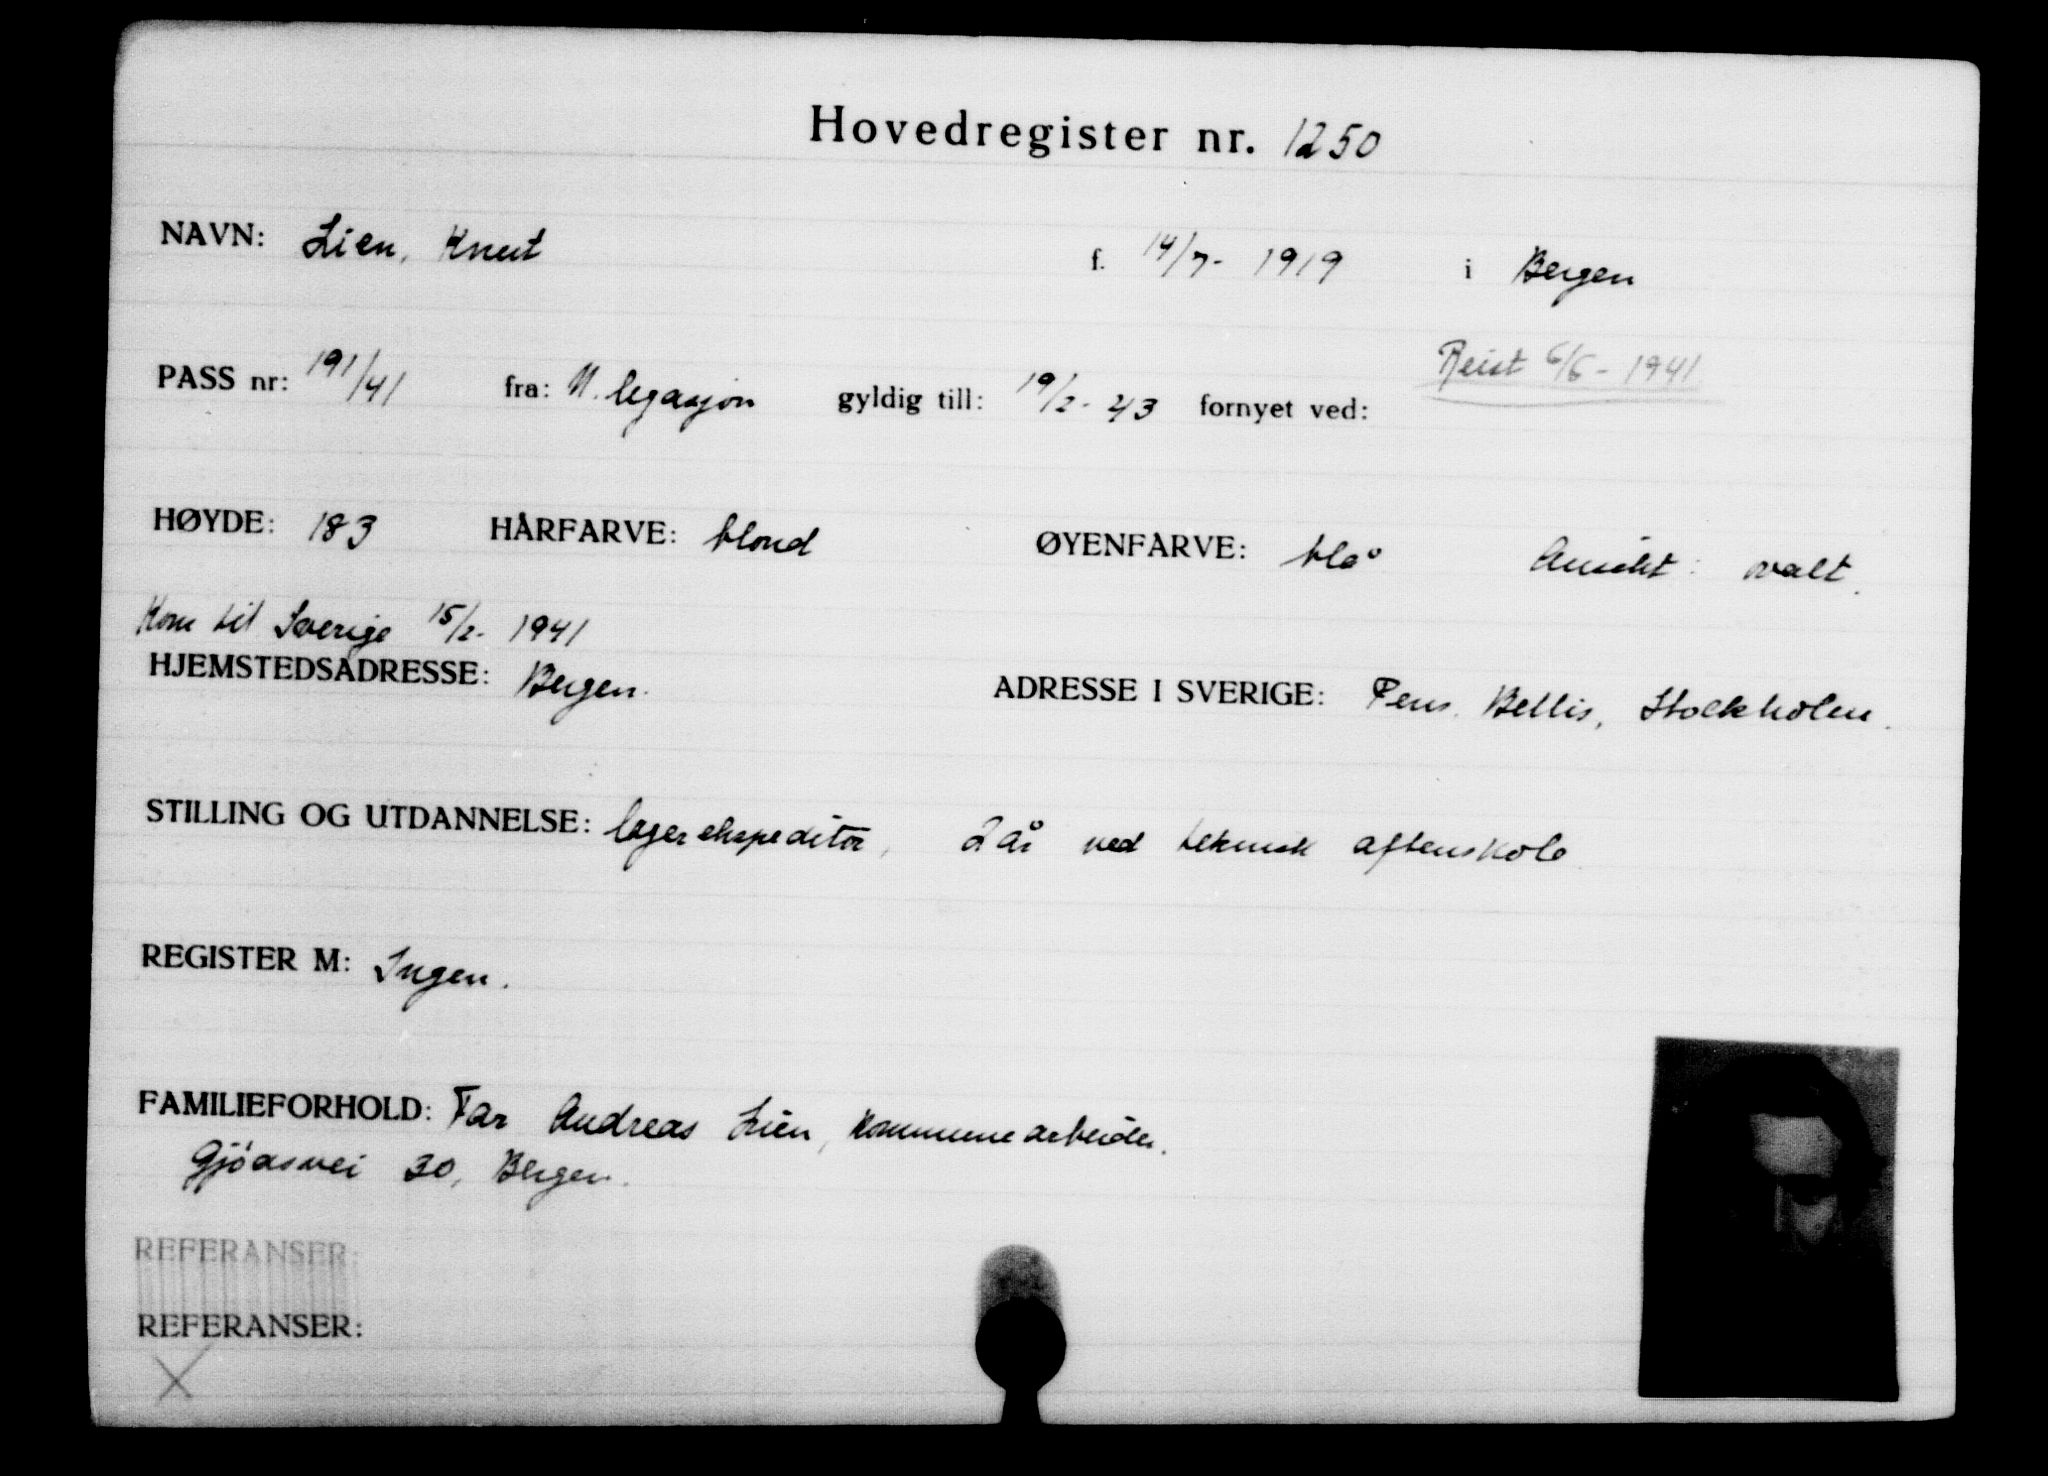 Hovedregister nr. 1250
NAVN: Lien, Knut f. 14/7- 1919 i Bergen
Reist 6/6- 1941
PASS nr: 191/41 fra: N. legasjon gyldig till: 19/2- 43 fornyet ved:
HØYDE: 183 HÅRFARVE: blond ØYENFARVE: blå Ansikt: ovalt.
Kom til Sverige 15/2- 1941
HJEMSTEDSADRESSE: Bergen. ADRESSE I SVERIGE: Pens. Bellis, Stockholm.
STILLING OG UTDANNELSE: lagerekspeditør, 2 år ved teknisk aftenskole
REGISTER M: Ingen.
FAMILIEFORHOLD: Far Andreas Lien, kommunearbeider.
Gjøasvei 30, Bergen.
REFERANSER:
REFERANSER: